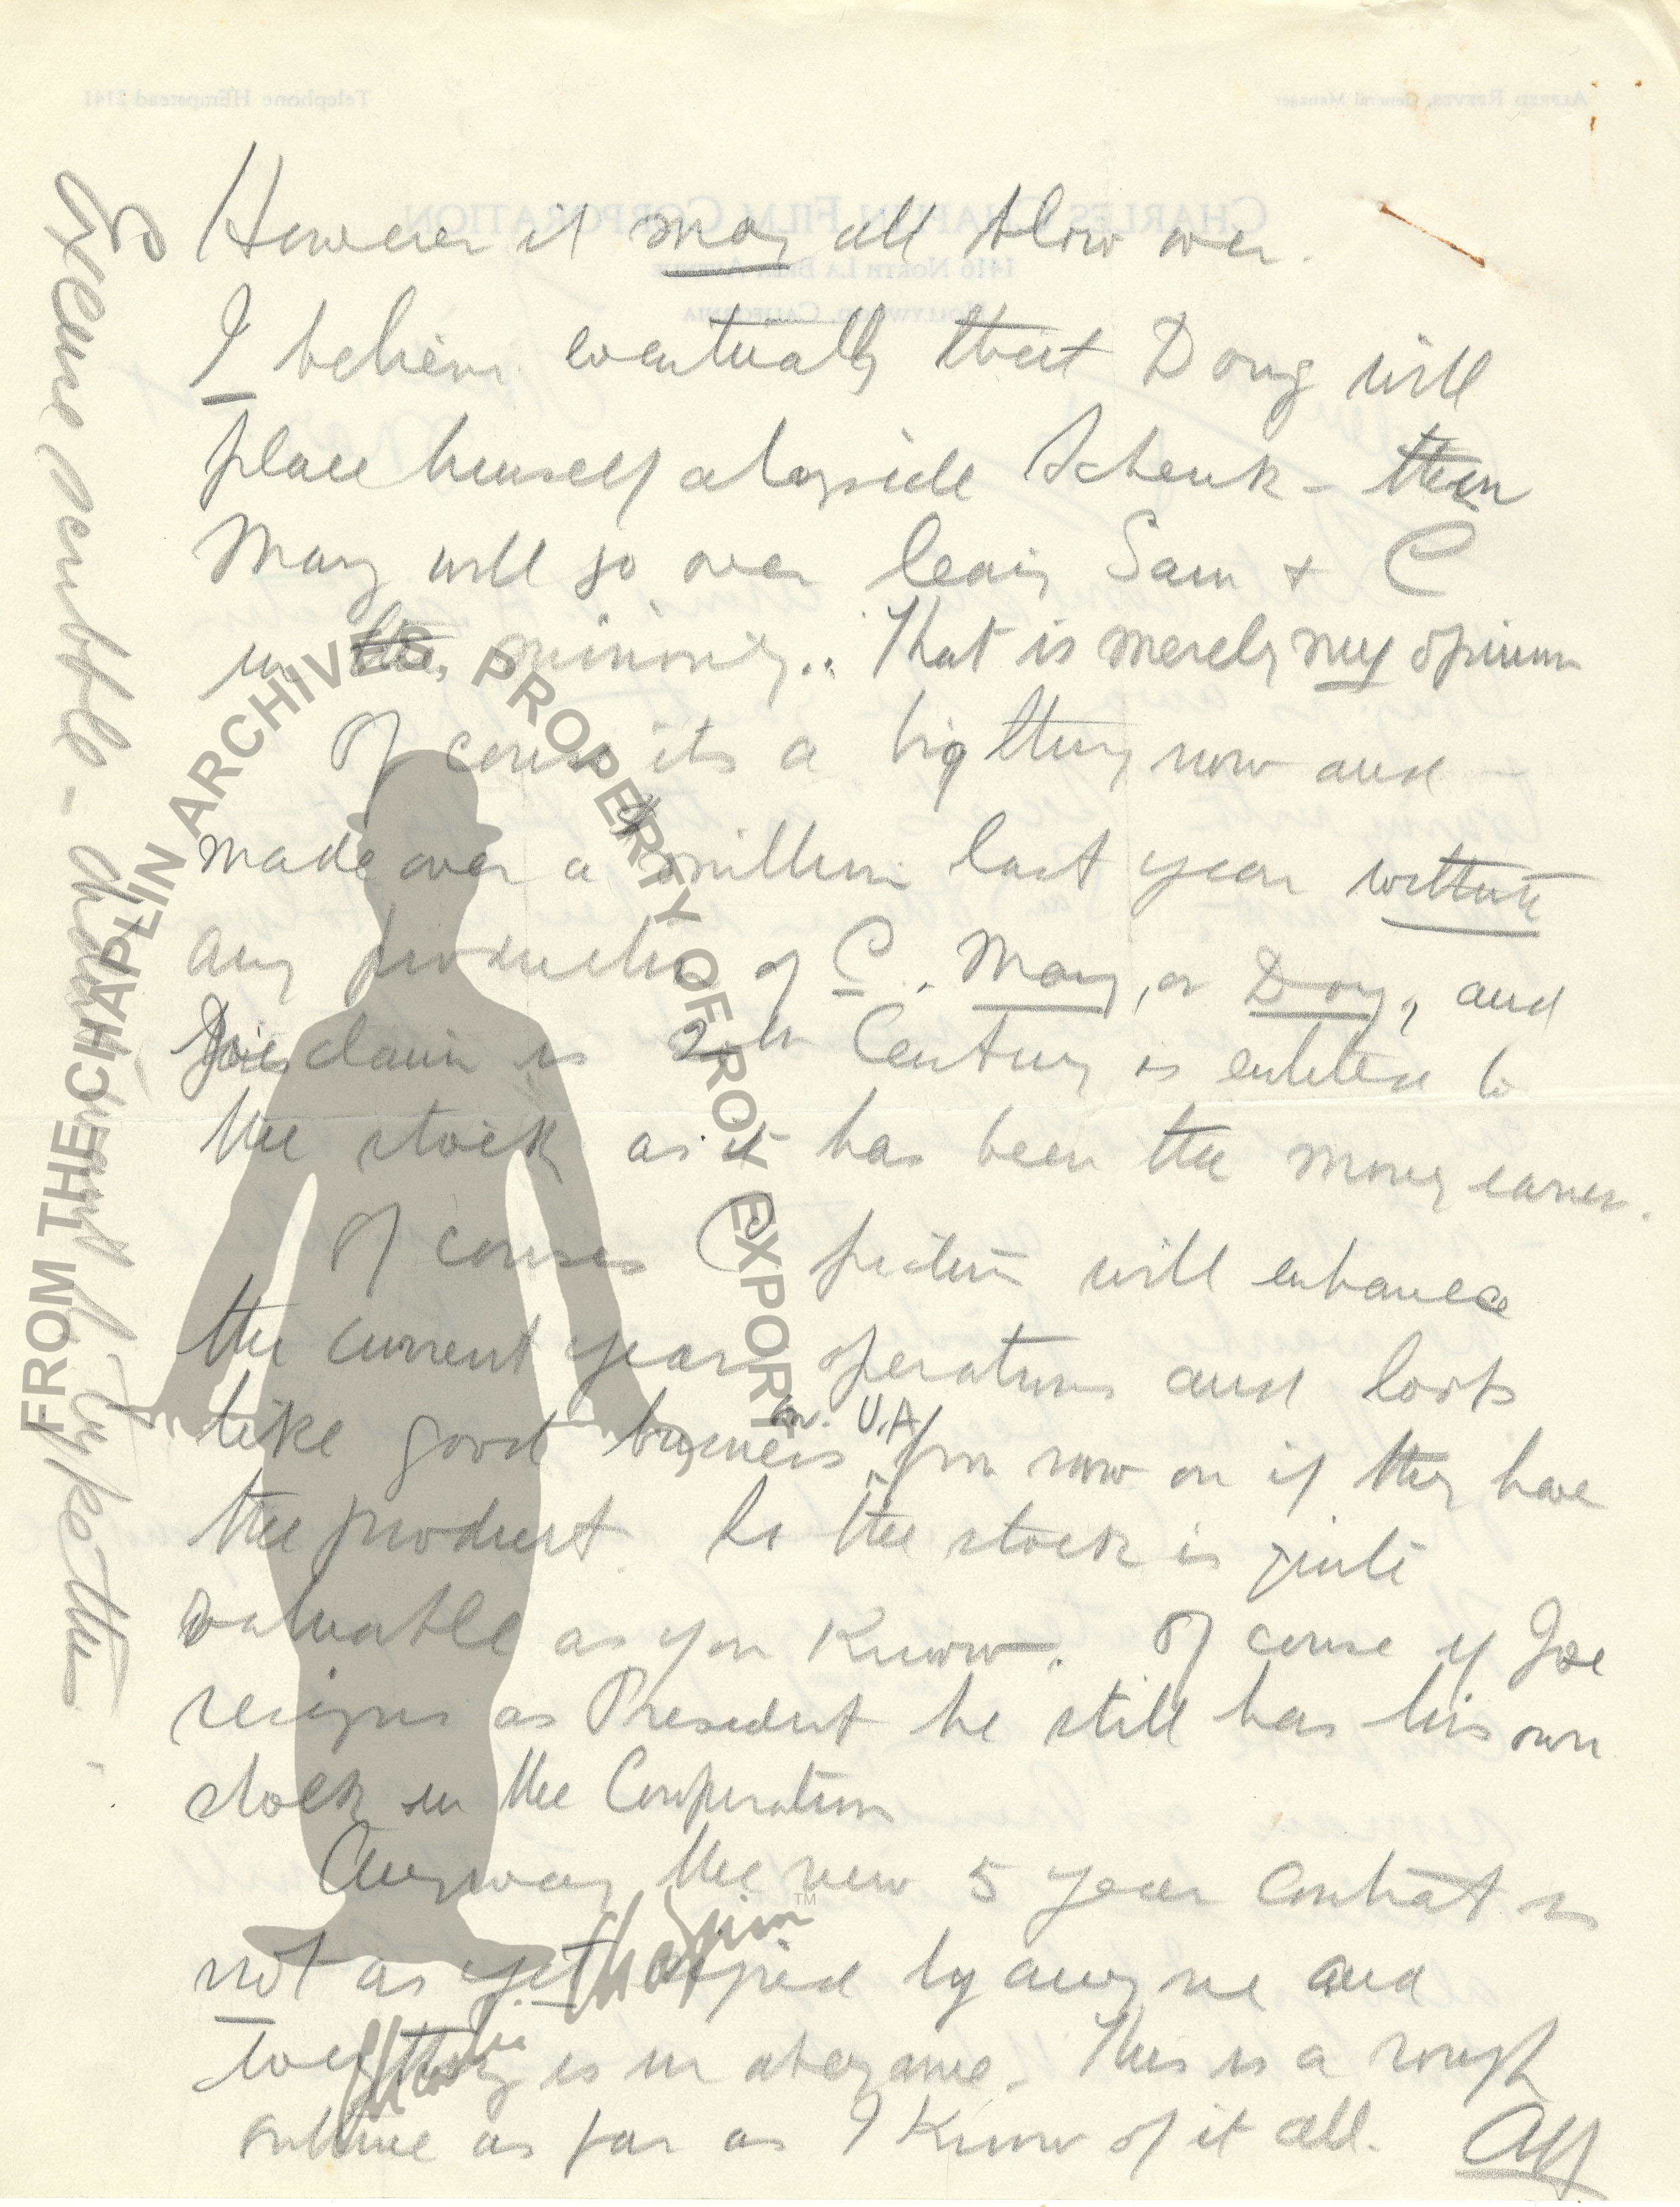 However it may all blow over.
I believe eventually that Doug will
place himself alongside Schenk - then
Mary will go over leaving Sam + C
in the minority.. That is merely my opinion
Of course its a big thing now and
made over a million last year without
any production of C. Mary, or Doug, and
Joes claim is 20th Century is entitled to
the stock as it has been the money earner.
Of course C picture will enhance
the current years operations and looks
like good business for U.A. from now on if they have
the product. So the stock is quite
valuable as you know. Of course if Joe
resigns as President he still has his own
stock in the Corporation
Anyway the new 5 year contrat is
not as yet signed by anyone and
everything is in abeyance. This is a rough
outline as far as I know of it all. Alf
Excuse pencil - didn't want to type this.
FROM THE CHAPLIN ARCHIVES, PROPERTY OF ROY EXPORT
Charlie Chaplin TM
Alfred Reeves, General Manager
Telephone HEmpstead 2141
CHARLES CHAPLIN FILM CORPORATION
1416 NORTH LA BREA AVENUE
HOLLYWOOD, CALIFORNIA